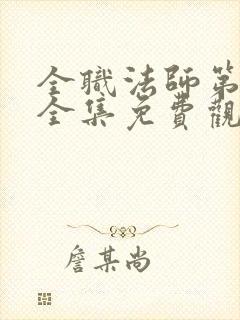 全職法師第
全集免費觀
詹某尚